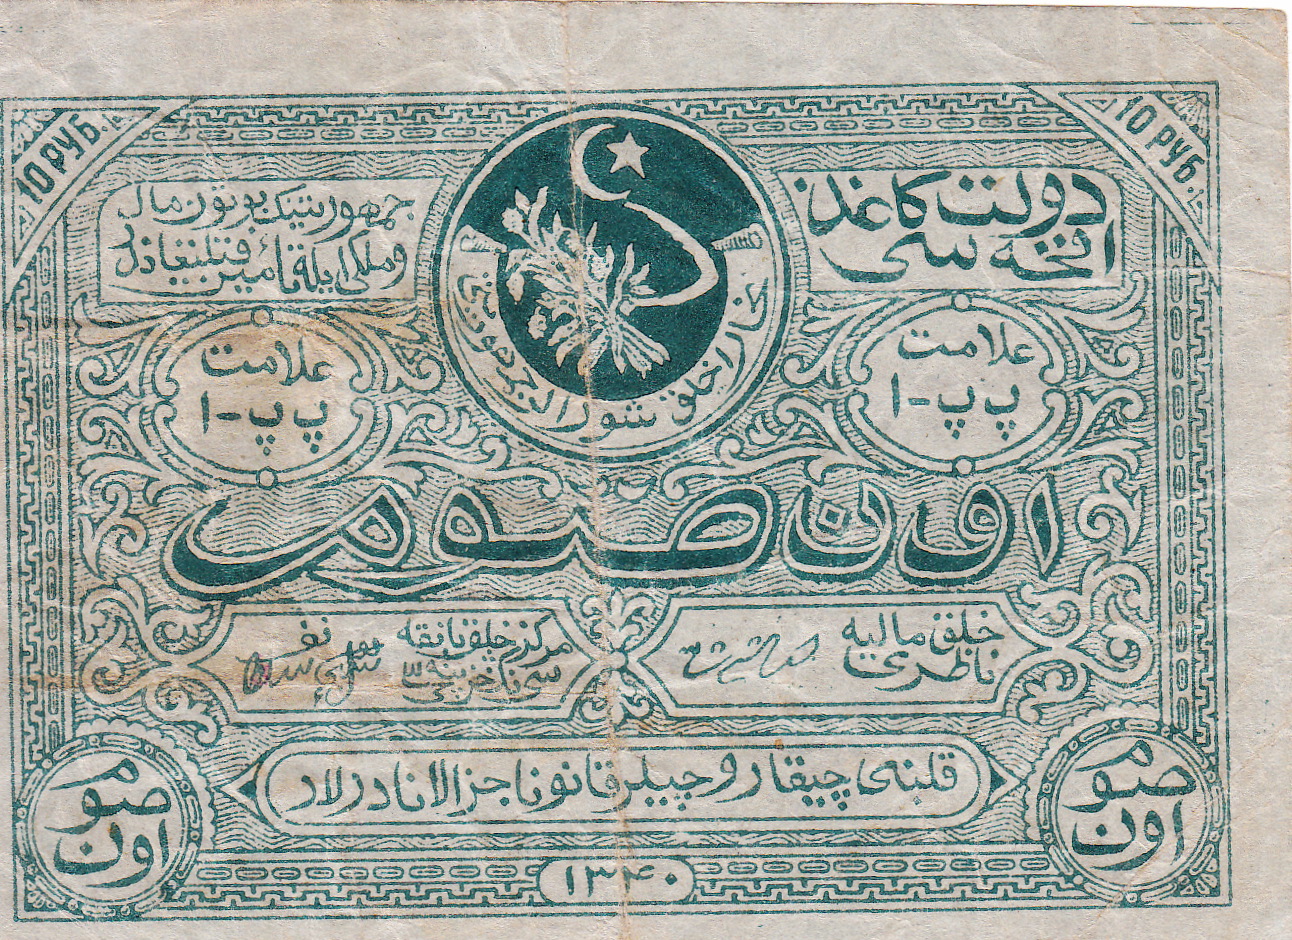 10 РУБ.
10 РУБ.
دولت كاغذ
اقچه سی
جمهوريتينك بوتون مال
و ملكی ايله تأمين قيلينغاندر
بخارا خلق شورالر جمهوريتی
علامت
پ پ - ١
علامت
پ پ - ١
اون صوم
خلق ماليه
ناظری
مركز خلق بانقه
سی نڭ
قلبنه‌ی چيقاروچيلر قانونا جزالانادرلار
صوم
اون
صوم
اون
١٣٤٠